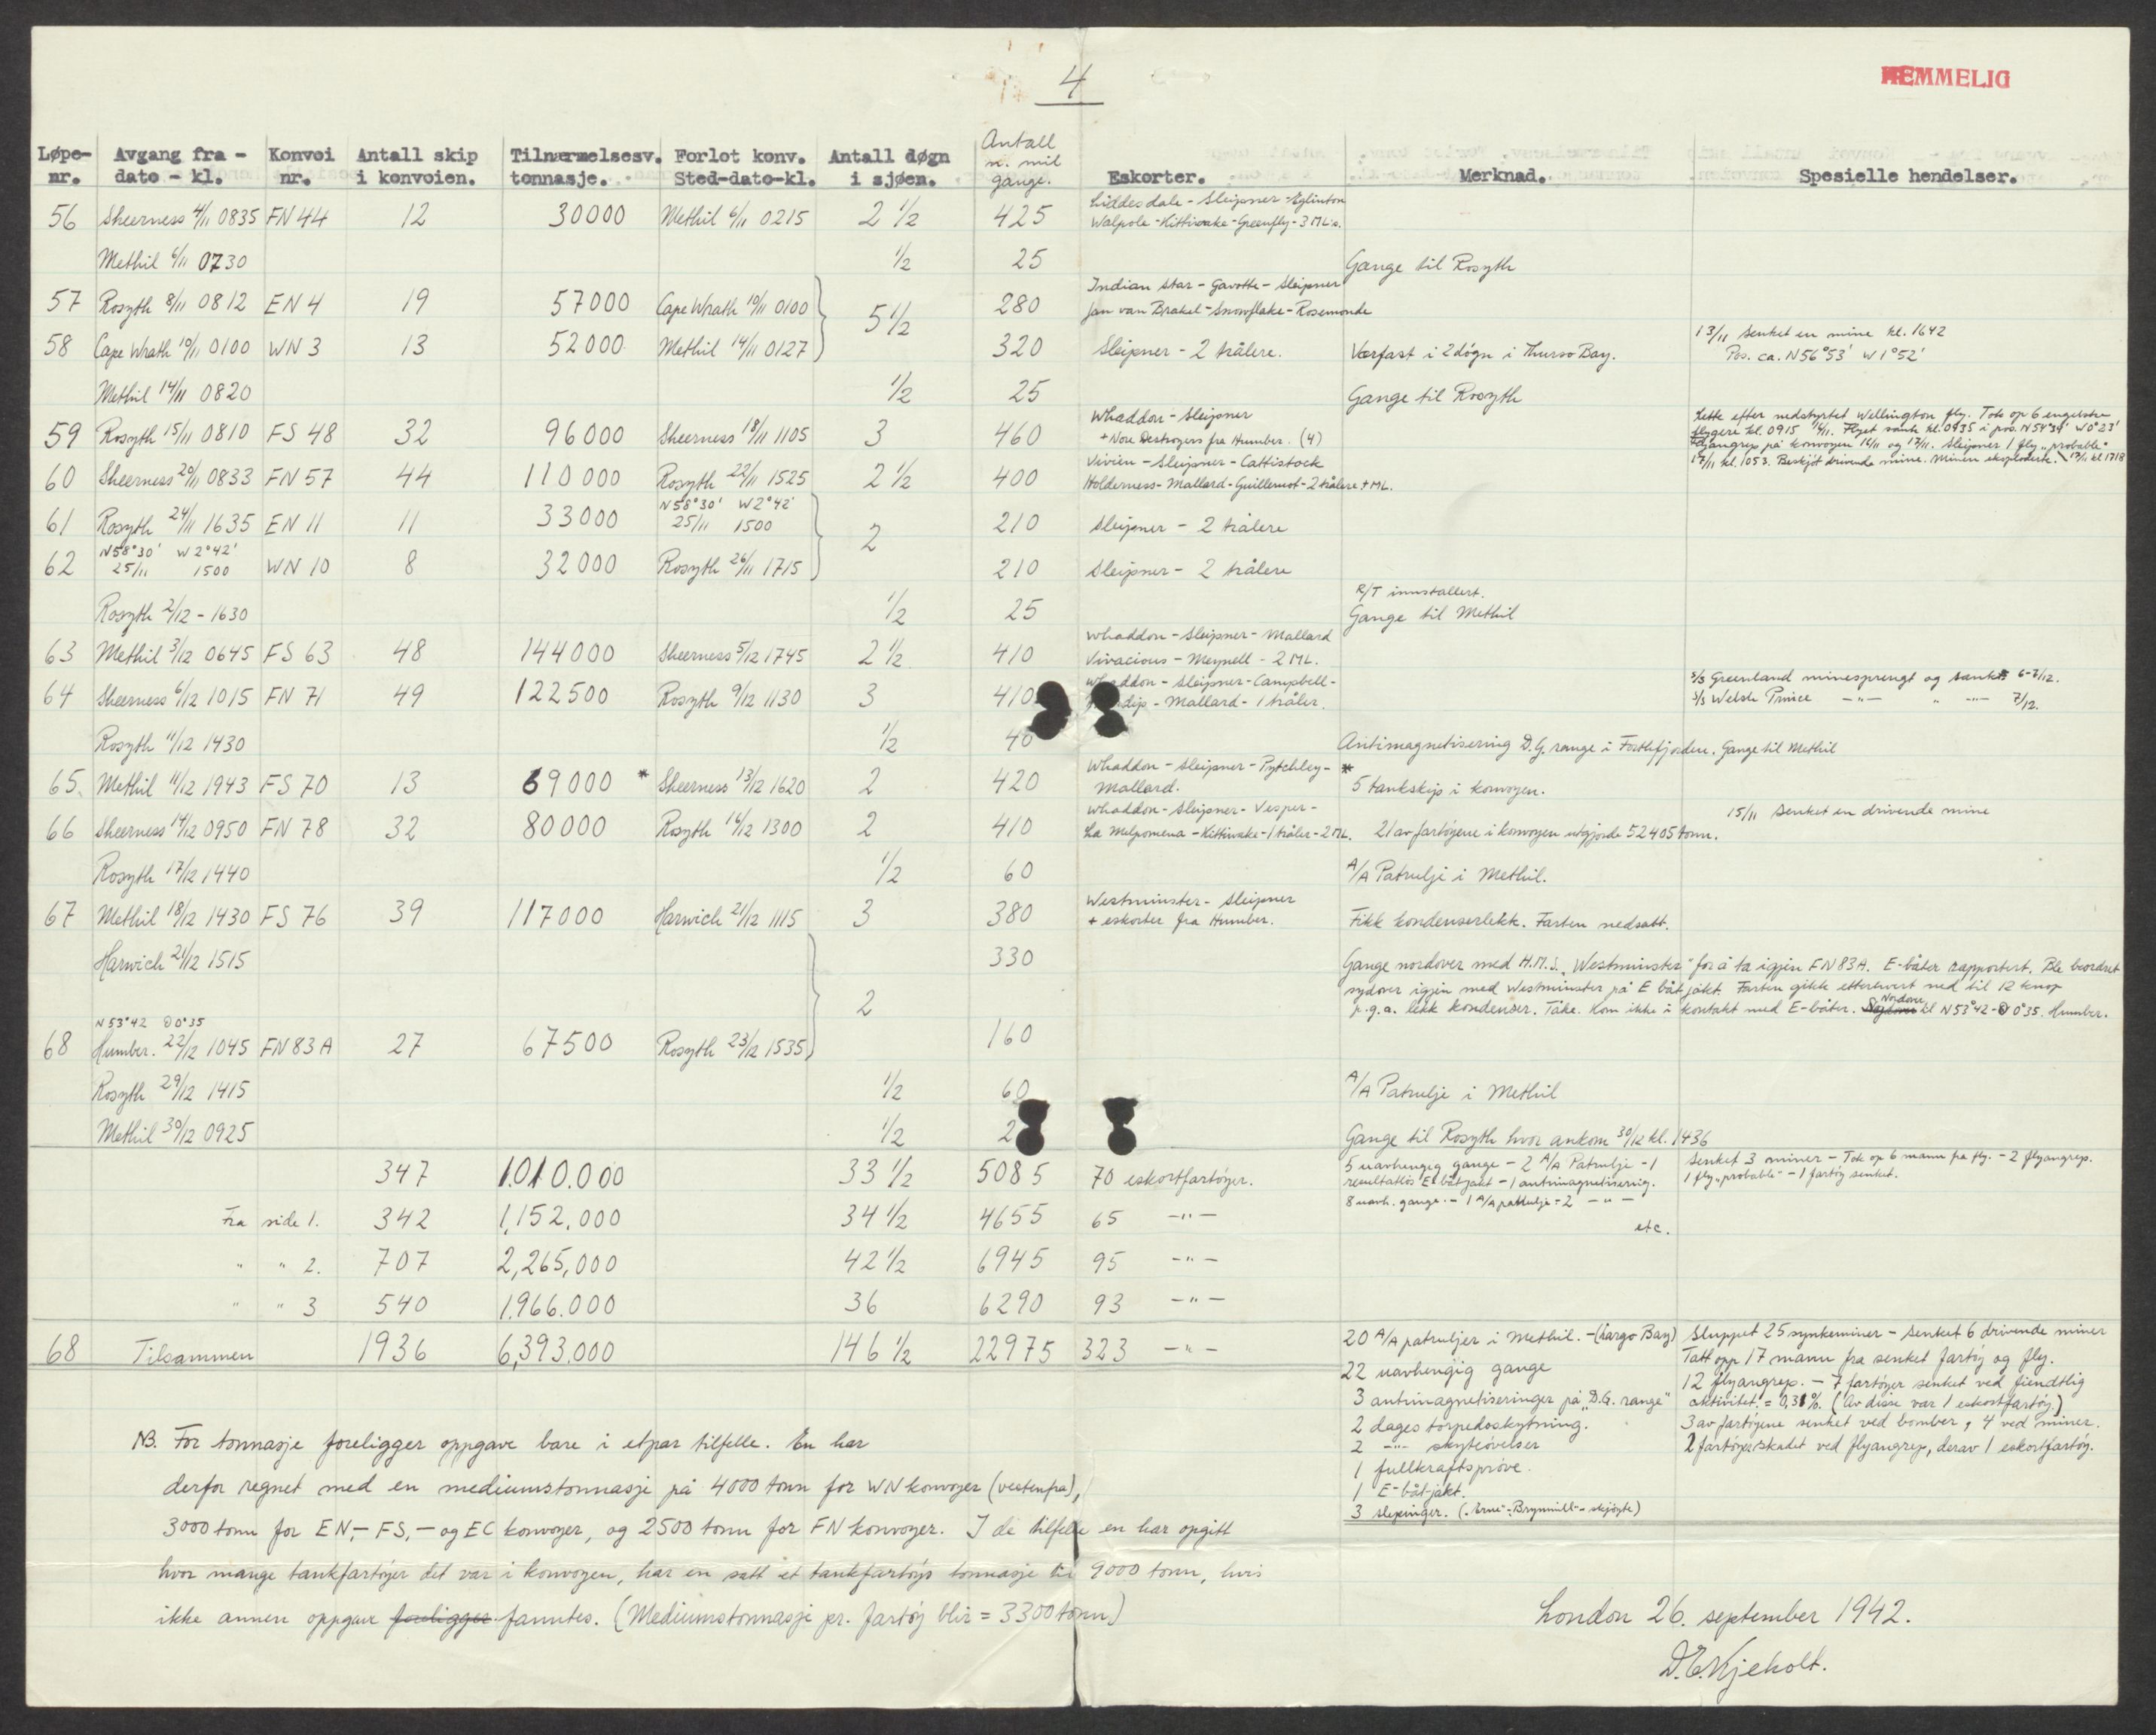 4
HEMMELIG
Løpe- nr. | Avgang fra - dato - kl. | Konvoi nr. | Antall skip i konvoien. | Tilnærmelsesv. tonnasje. | Forlot konv. Sted-dato-kl. | Antall døgn i sjøen. | Antall n. mil gange. | Eskorter. | Merknad. | Spesielle hendelser.
56 Sheerness 4/11 0835 FN 44 12 30000 Methil 6/11 0215 2 1/2 425 Liddesdale - Sleipner - Eglinton
Walpole - Kittiwake - Greenfly - 3 ML's.
Methil 6/11 0730 1/2 25 Gange til Rosyth
57 Rosyth 8/11 0812 EN 4 19 57000 Cape Wrath 10/11 0100 5 1/2 280 Indian Star - Gavotte - Sleipner
Jan van Brakel - Snowflake - Rosemonde
58 Cape Wrath 10/11 0100 WN 3 13 52000 Methil 14/11 0127 320 Sleipner - 2 trålere. Værfast i 2 døgn i Thurso Bay. 13/11 senket en mine kl. 1642
Pos. ca. N 56°53' W 1°52'
Methil 14/11 0820 1/2 25 Gange til Rosyth
59 Rosyth 15/11 0810 FS 48 32 96000 Sheerness 18/11 1105 3 460 Whaddon - Sleipner
+ Nore Destroyers fra Humber. (4)
Lette efter nedstyrtet Wellington fly. Tok op 6 engelske
flygere kl. 0915 16/11. Flyet sank kl. 0935 i pos. N 54°39' W 0°23'
Flyangrep på konvoyen 16/11 og 17/11. Sleipner 1 fly "probable"
17/11 kl. 1053. Beskjøt drivende mine. Minen eksploderte. 17/11 kl 1718
60 Sheerness 20/11 0833 FN 57 44 110000 Rosyth 22/11 1525 2 1/2 400 Vivien - Sleipner - Cattistock
Holderness - Mallard - Guillemot - 2 trålere + ML.
61 Rosyth 24/11 1635 EN 11 11 33000 N 58°30' W 2°42' 25/11 1500 2 210 Sleipner - 2 trålere
62 N 58°30' W 2°42' 25/11 1500 WN 10 8 32000 Rosyth 26/11 1715 210 Sleipner - 2 trålere
Rosyth 2/12 - 1630 1/2 25 R/T innstallert.
Gange til Methil
63 Methil 3/12 0645 FS 63 48 144000 Sheerness 5/12 1745 2 1/2 410 Whaddon - Sleipner - Mallard
Vivacious - Meynell - 2 ML.
64 Sheerness 6/12 1015 FN 71 49 122500 Rosyth 9/12 1130 3 410 Whaddon - Sleipner - Campbell -
- Mallard - 1 tråler.
S/S Greenland minesprengt og sank 6-7/12.
S/S Welsh Prince -"- " -"- 7/12.
Rosyth 11/12 1430 1/2 40 Antimagnetisering D.G. range i Forthfjorden. Gange til Methil
65. Methil 11/12 1943 FS 70 13 69000 * Sheerness 13/12 1620 2 420 Whaddon - Sleipner - Pytchley - *
Mallard. 5 tankskip i konvoyen.
66 Sheerness 14/12 0950 FN 78 32 80000 Rosyth 16/12 1300 2 410 Whaddon - Sleipner - Vesper - 15/11 senket en drivende mine
La Melpomena - Kittiwake - 1 tråler - 2 ML. 21 av fartøyene i konvoyen utgjorde 52405 tonn.
Rosyth 17/12 1440 1/2 60 A/A Patrulje i Methil.
67 Methil 18/12 1430 FS 76 39 117000 Harwich 21/12 1115 3 380 Westminster - Sleipner
+ eskorter fra Humber. Fikk kondenserlekk. Farten nedsatt.
Harwich 21/12 1515 2 330 Gange nordover med H.M.S. "Westminster" for å ta igjen FN 83A. E-båter rapportert. Ble beordret
sydover igjen med Westminster på E båtjakt. Farten gikk etterhvert ned til 12 knop
p.g.a. lekk kondenser. Tåke. Kom ikke i kontakt med E-båter. Nordover kl N 53°42 - O 0°35. Humber.
N 53°42 O 0°35
68 Humber. 22/12 1045 FN 83 A 27 67500 Rosyth 23/12 1535 160
Rosyth 29/12 1415 1/2 60 A/A Patrulje i Methil
Methil 30/12 0925 1/2 2 Gange til Rosyth hvor ankom 30/12 kl. 1436
347 1.010.000 33 1/2 5085 70 eskortfartøyer. 5 uavhengig gange - 2 A/A Patrulje - 1
resultatløs E båtjakt - 1 antimagnetisering.
Senket 3 miner - Tok op 6 mann fra fly. - 2 flyangrep.
1 fly "probable" - 1 fartøy senket.
Fra side 1. 342 1,152,000 34 1/2 4655 65 -"- 8 uavh. gange. - 1 A/A patrulje - 2 -"-
etc.
" " 2. 707 2,265,000 42 1/2 6945 95 -"-
" " 3 540 1.966.000 36 6290 93 -"-
68 Tilsammen 1936 6,393.000 146 1/2 22975 323 -"-
20 A/A patruljer i Methil. - (Largo Bay)
22 uavhengig gange
3 antimagnetiseringer på "D.G. range"
2 dages torpedoskytning.
2 -"- skyteøvelser
1 fullkraftsprøve.
1 E-båtjakt.
3 slepinger. ( - Brynmill - skjøyte)
Sluppet 25 synkeminer - senket 6 drivende miner
Tatt opp 17 mann fra senket fartøy og fly.
12 flyangrep. - 7 fartøyer senket ved fiendtlig
aktivitet. = 0,31%. (Av disse var 1 eskortfartøy.)
3 av fartøyene senket ved bomber, 4 ved miner.
2 fartøyer skadet ved flyangrep, derav 1 eskortfartøy.
NB. For tonnasje foreligger oppgave bare i etpar tilfelle. En har
derfor regnet med en mediumstonnasje på 4000 tonn for WN konvoyer (vestenfra),
3000 tonn for EN,- FS,- og EC konvoyer, og 2500 tonn for FN konvoyer. I de tilfelle en har opgitt
hvor mange tankfartøyer det var i konvoyen, har en satt et tankfartøys tonnasje til 9000 tonn, hvis
ikke annen oppgave foreligger fanntes. (Mediumstonnasje pr. fartøy blir = 3300 tonn)
London 26. september 1942.
D.E. Kjeholt.